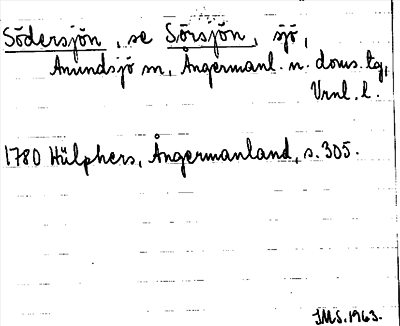 Södersjön, se Sörsjön, sjö,
Anundsjö sn, Ångermanl. n. doms.tg,
Vrnl. l.
1780 Hülphers, Ångermanland, s. 305.
JMS. 1963.